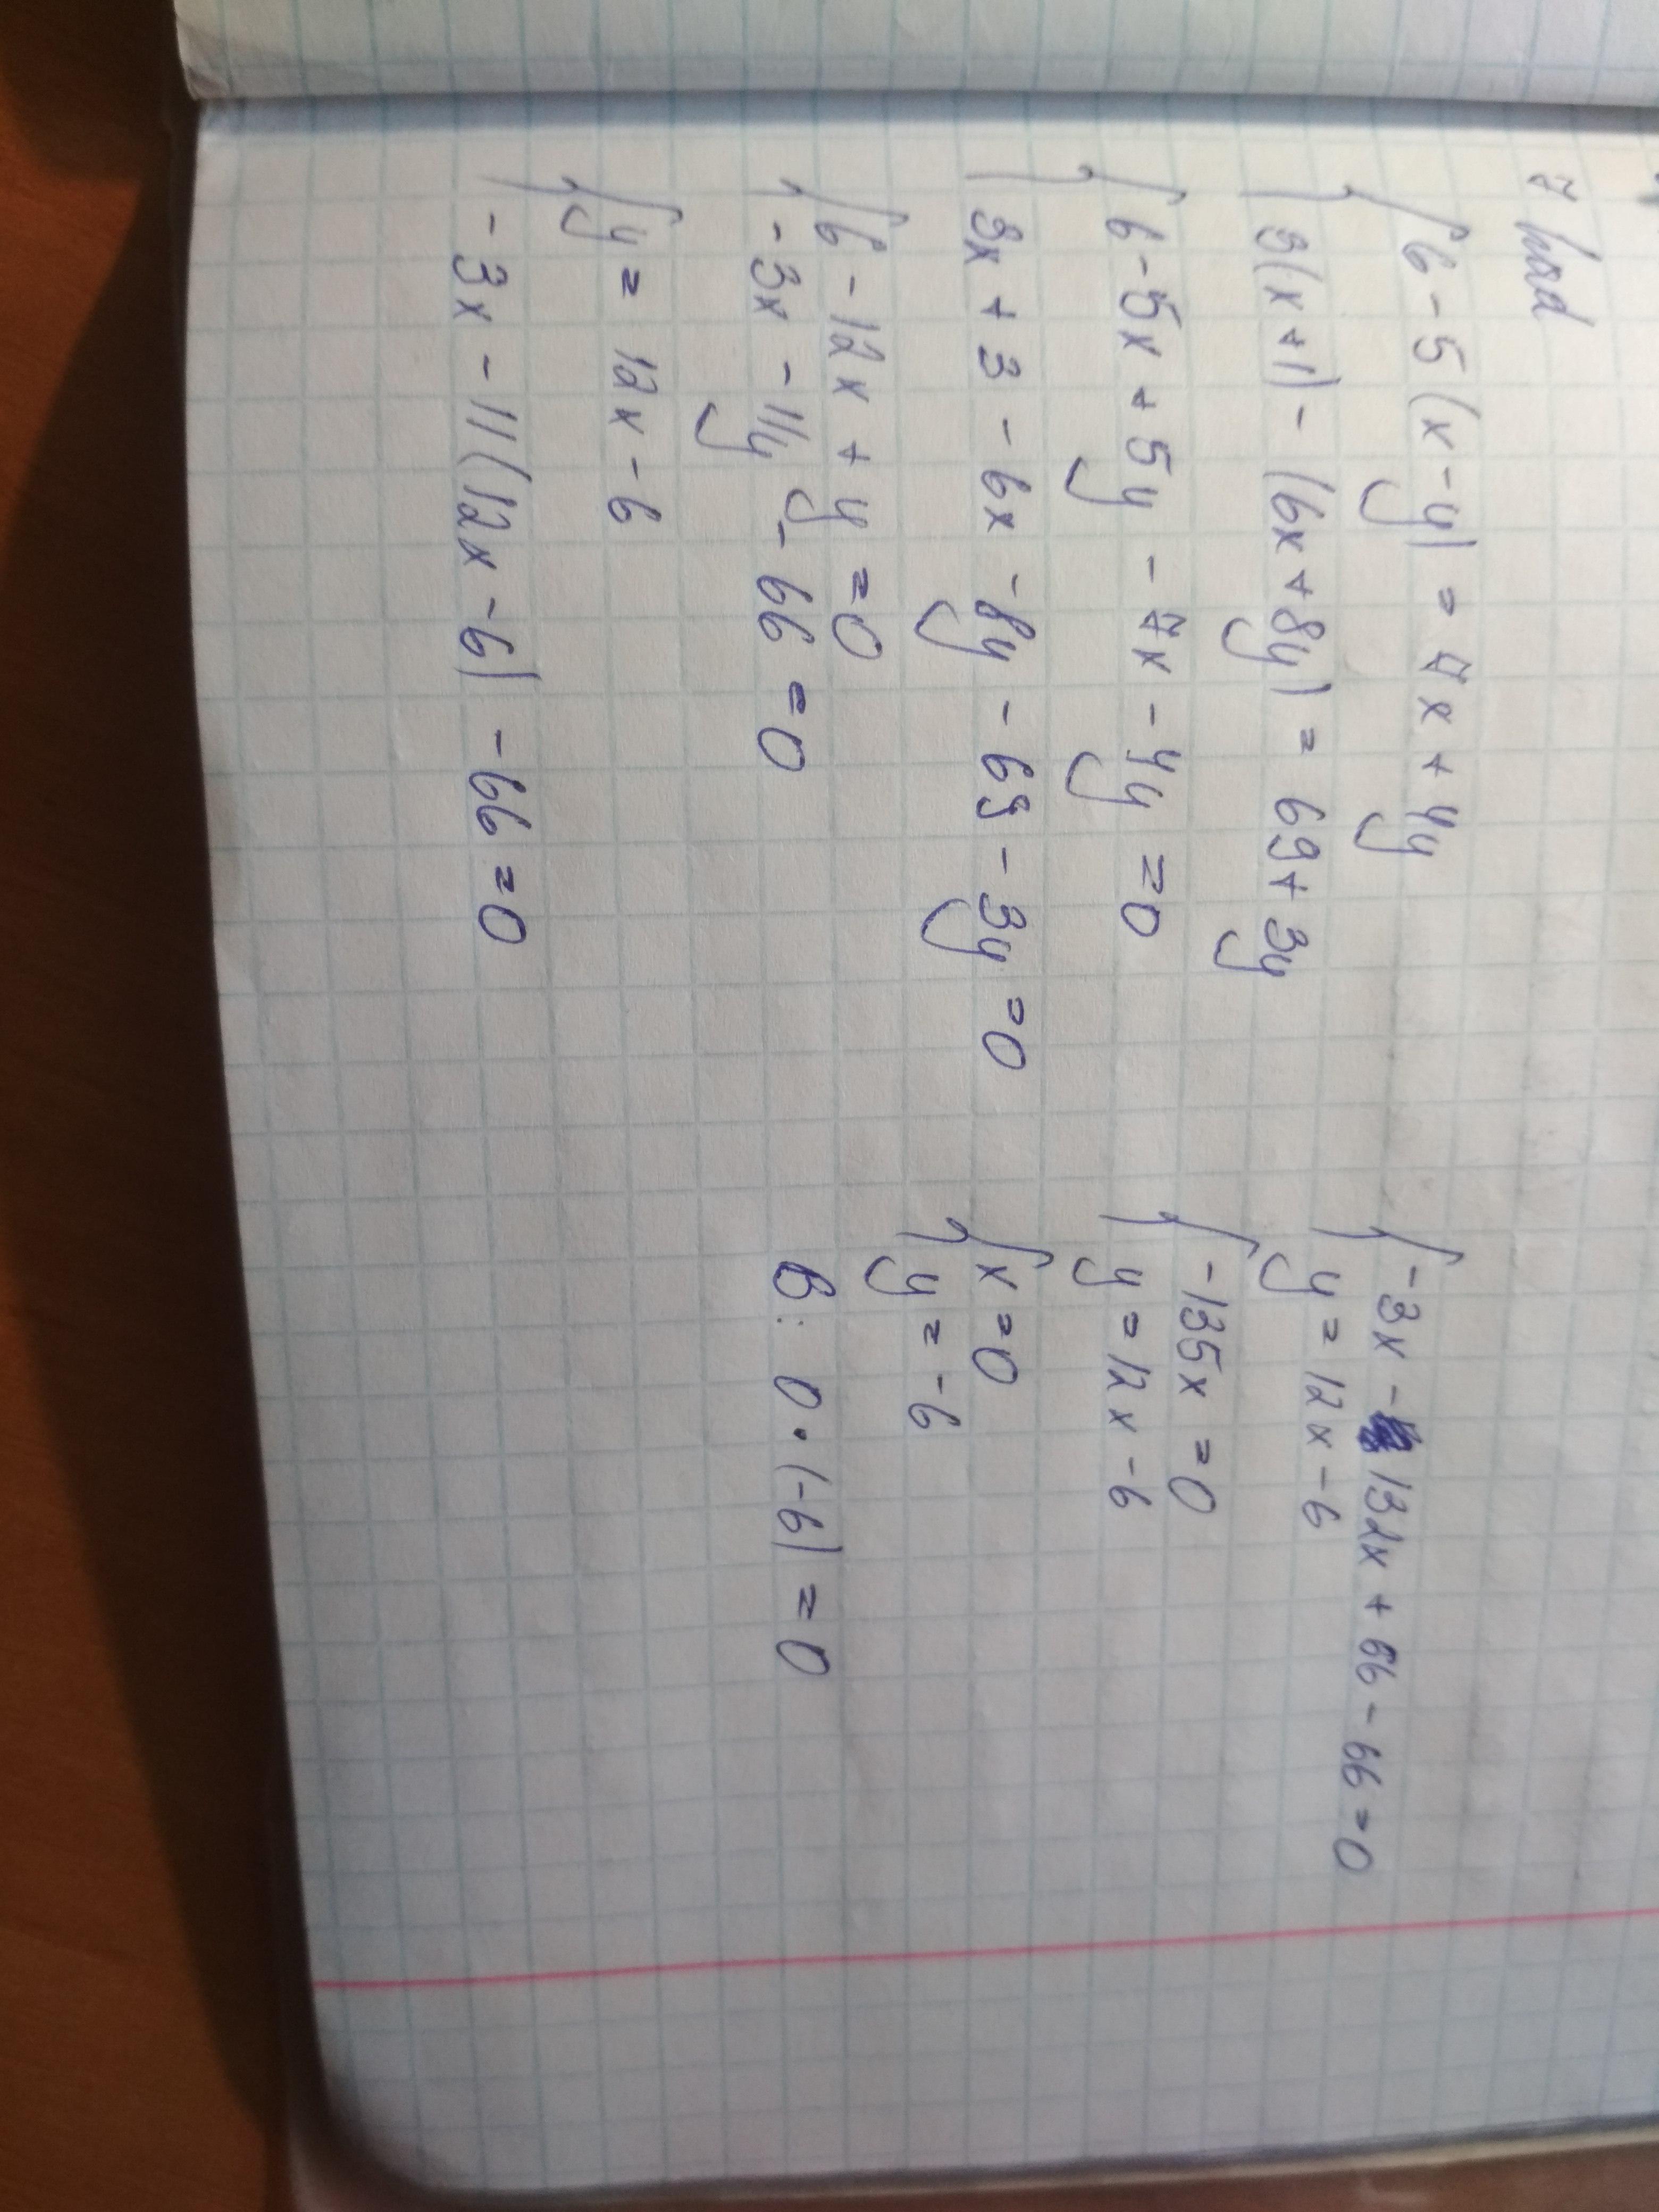 7 hard
6 - 5(x - y) = 7x + 4y
3(x + 1) - (6x + 8y) = 69 + 3y
6 - 5x + 5y - 7x - 4y = 0
3x + 3 - 6x - 8y - 69 - 3y = 0
6 - 12x + y = 0
-3x - 11y - 66 = 0
y = 12x - 6
-3x - 11(12x - 6) - 66 = 0
-3x - 132x + 66 - 66 = 0
y = 12x - 6
-135x = 0
y = 12x - 6
x = 0
y = -6
В: 0 · (-6) = 0